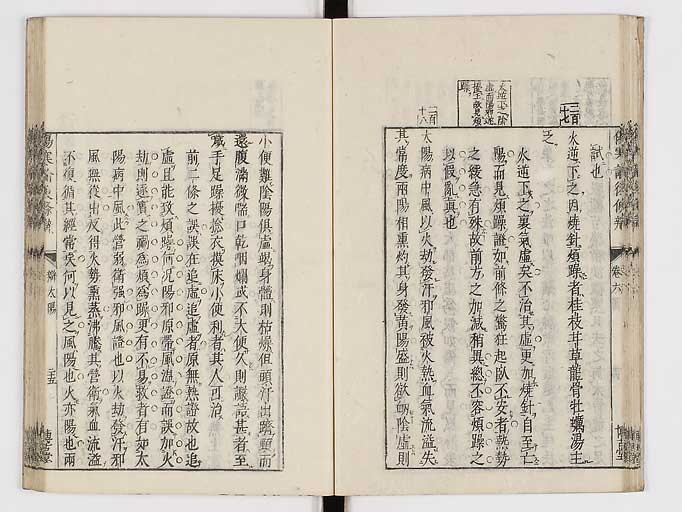 試也
火逆下之因燒針煩躁者桂枝甘草龍骨牡蠣湯主
之
火逆下之裏氣虛矣不治其虛更加燒針自至亡
陽而見煩躁證如前條之驚狂起臥不安者熱勢
之緩急有殊故前方之加減稍異總不容煩躁之
以假亂真也
太陽病中風以火劫發汗邪風被火熱血氣流溢失
其常度兩陽相熏灼其身發黃陽盛則欲衂陰虛則
二百十七
二百十八
卷六
小便難陰陽俱虛竭身體則枯燥但頭汗出劑頸而
還腹滿微喘口乾咽爛或不大便久則譫語甚者至
噦手足躁擾捻衣摸床小便利者其人可治
前二條之誤誤在追虛追虛者原無熱證故也追
虛且能致煩躁何况陽邪原帶風濕證而誤加火
劫則逐實之禍為煩為躁更有不易救者有如太
陽病中風此營弱衛强邪風證也以火劫發汗邪
風無從出反得火勢熏蒸沸騰其營衛氣血流溢
不復循其經常矣何以見之風陽也火亦陽也兩
辯太陽
五